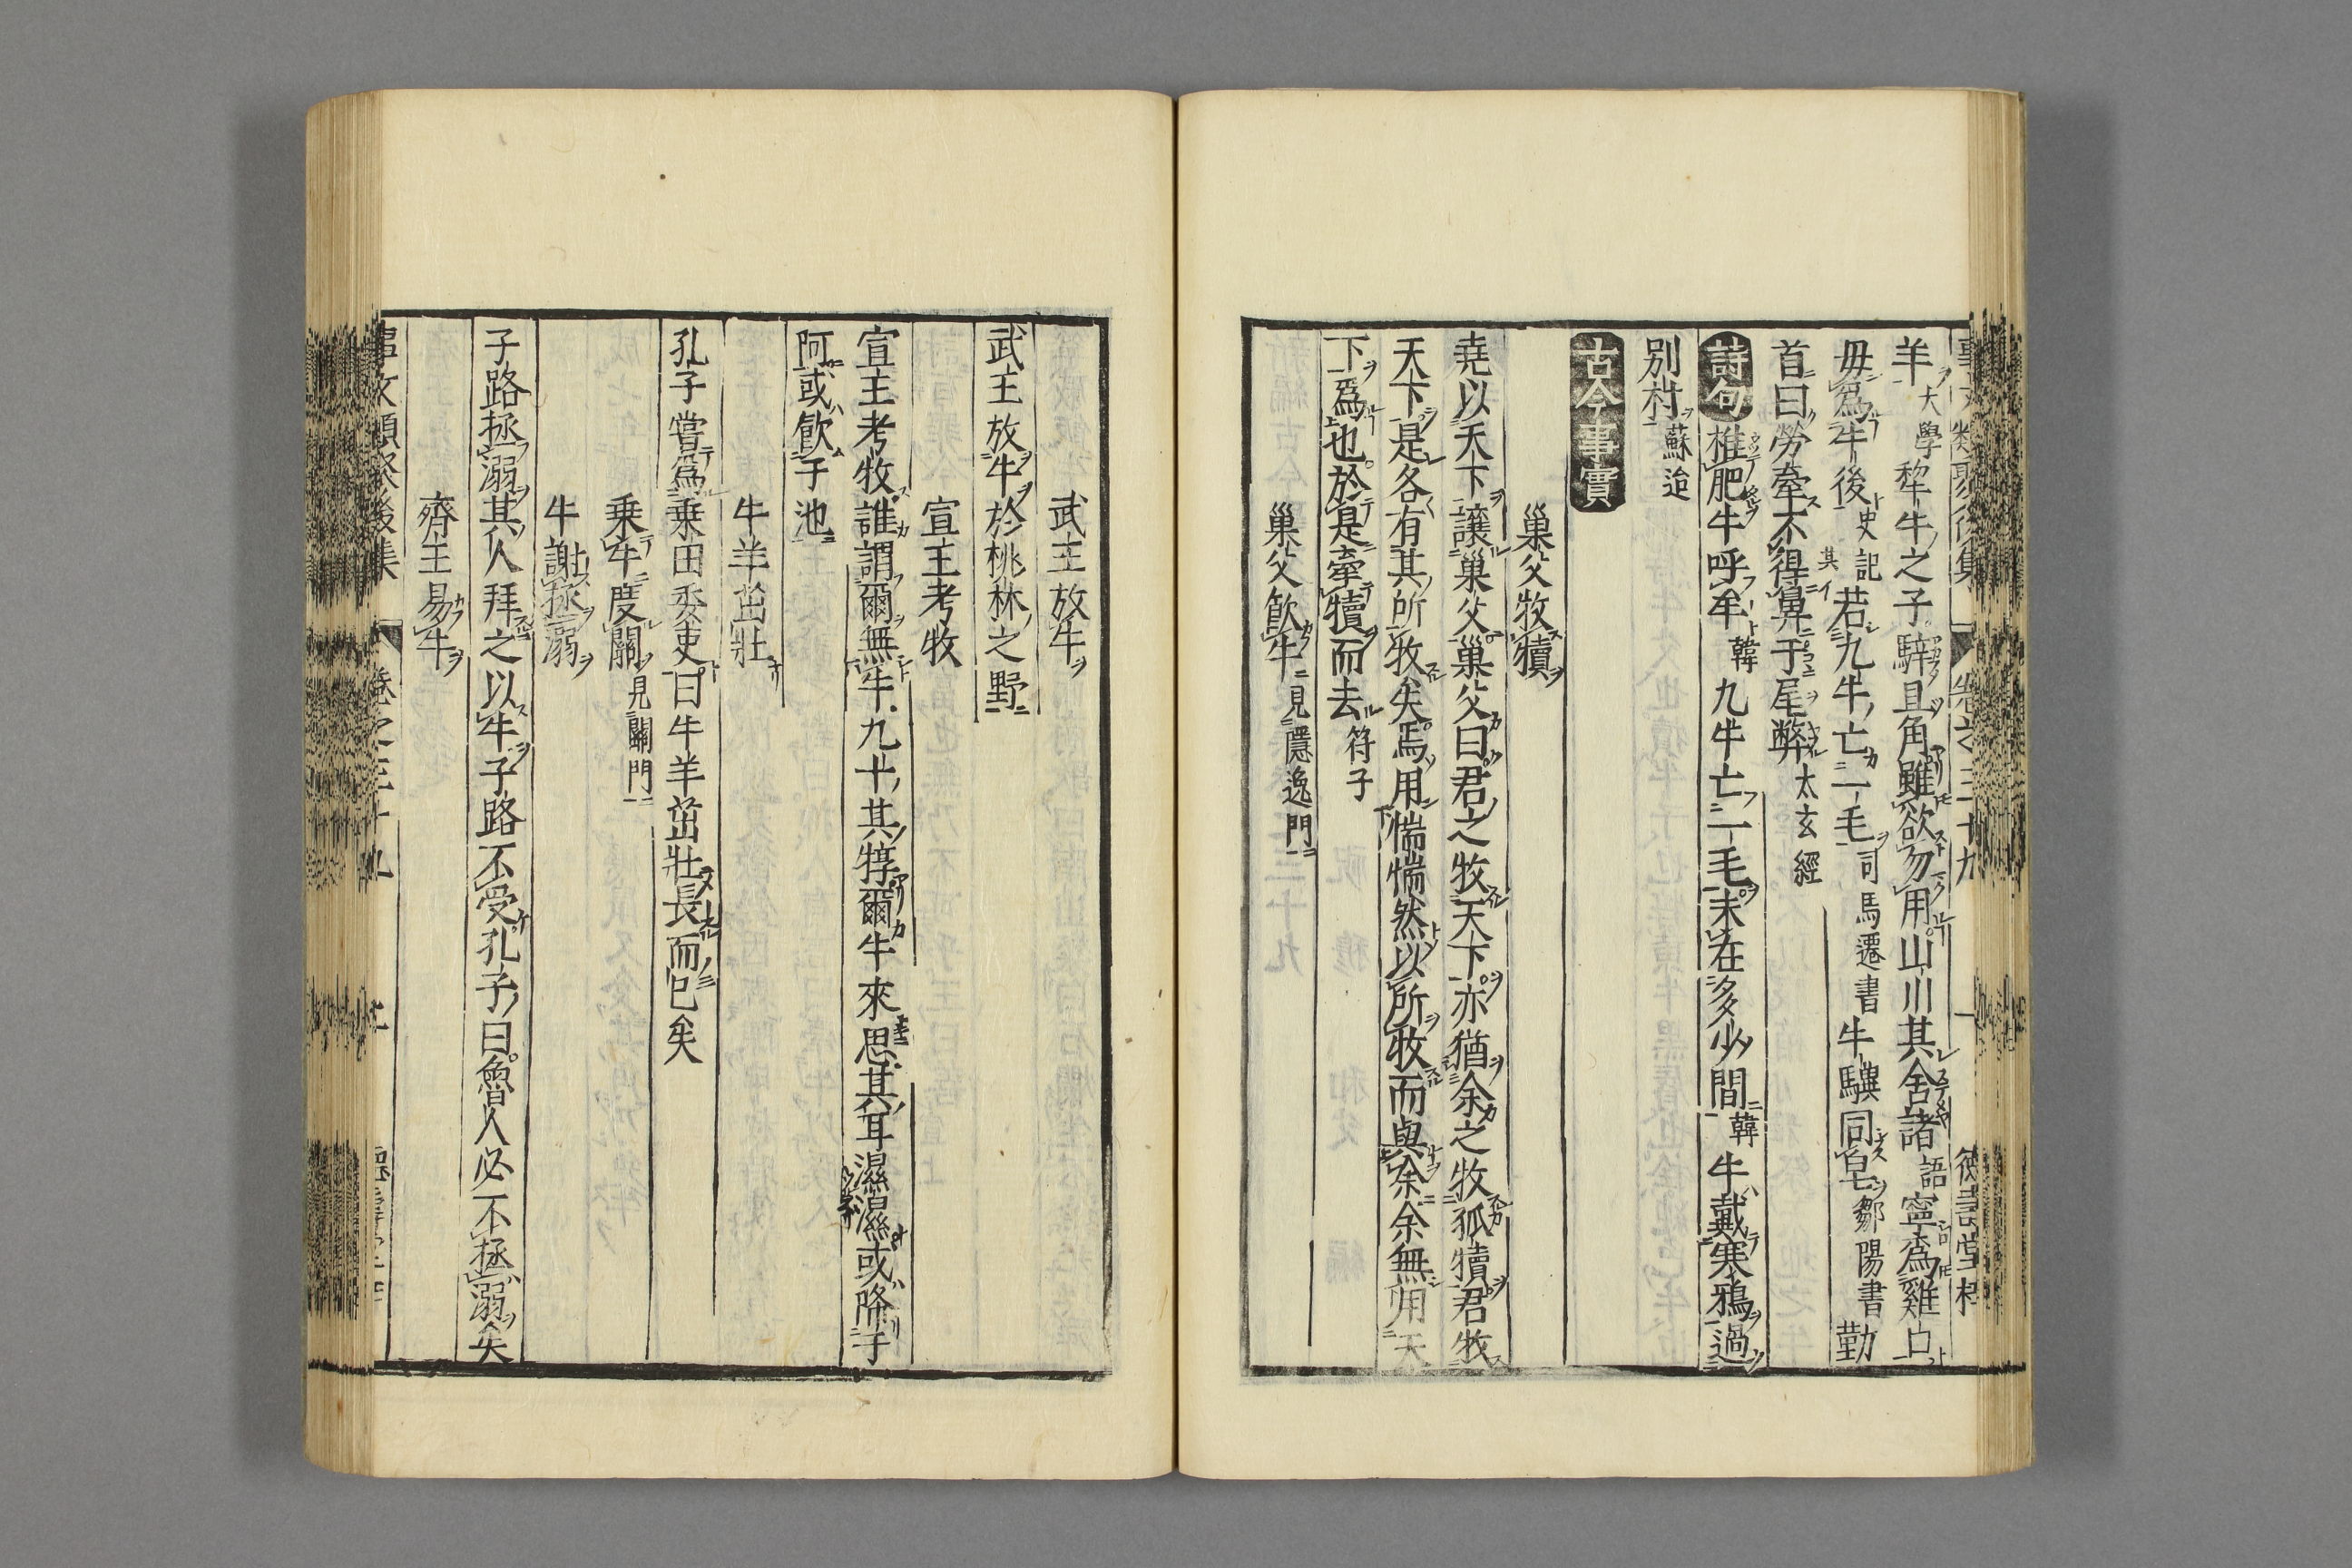 羊大學犂牛之子騂且角雖欲勿用山川其舍諸語寧爲雞口
毋爲牛後史記若九牛亡一毛司馬遷書牛驥同皂鄒陽書勤
其イ
首曰勞牽不得鼻于尾弊太玄經
詩句椎肥牛呼牟韓九牛亡一毛未在多少間韓牛戴寒鴉過
別村蘇迨
古今事實
巢父牧犢
堯以天下讓巢父巢父曰君之牧天下亦猶余之牧狐犢君牧
天下是各有其所牧矣焉用惴惴然以所牧而與余余無用天
下爲也於是牽犢而去符子
巢父飮牛見隱逸門
武王放牛
武王放牛於桃林之野
宣王考牧
宣王考牧誰謂爾無牛九十其犉爾牛來思其耳濕濕或降于
阿或飮于池
牛羊茁壯
孔子嘗爲乗田委吏曰牛羊茁壯長而已矣
乗牛度關見關門
牛謝拯溺
子路拯溺其人拜之以牛子路不受孔子曰魯人必不拯溺矣
齊王易牛
事文類聚後集 卷之三十九